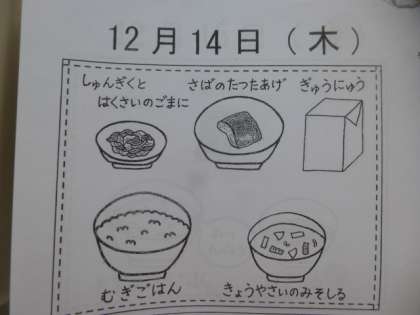 12月14日（木）
しゅんぎくと
はくさいのごまに
さばのたつたあげ
ぎゅうにゅう
むぎごはん
きょうやさいのみそしる